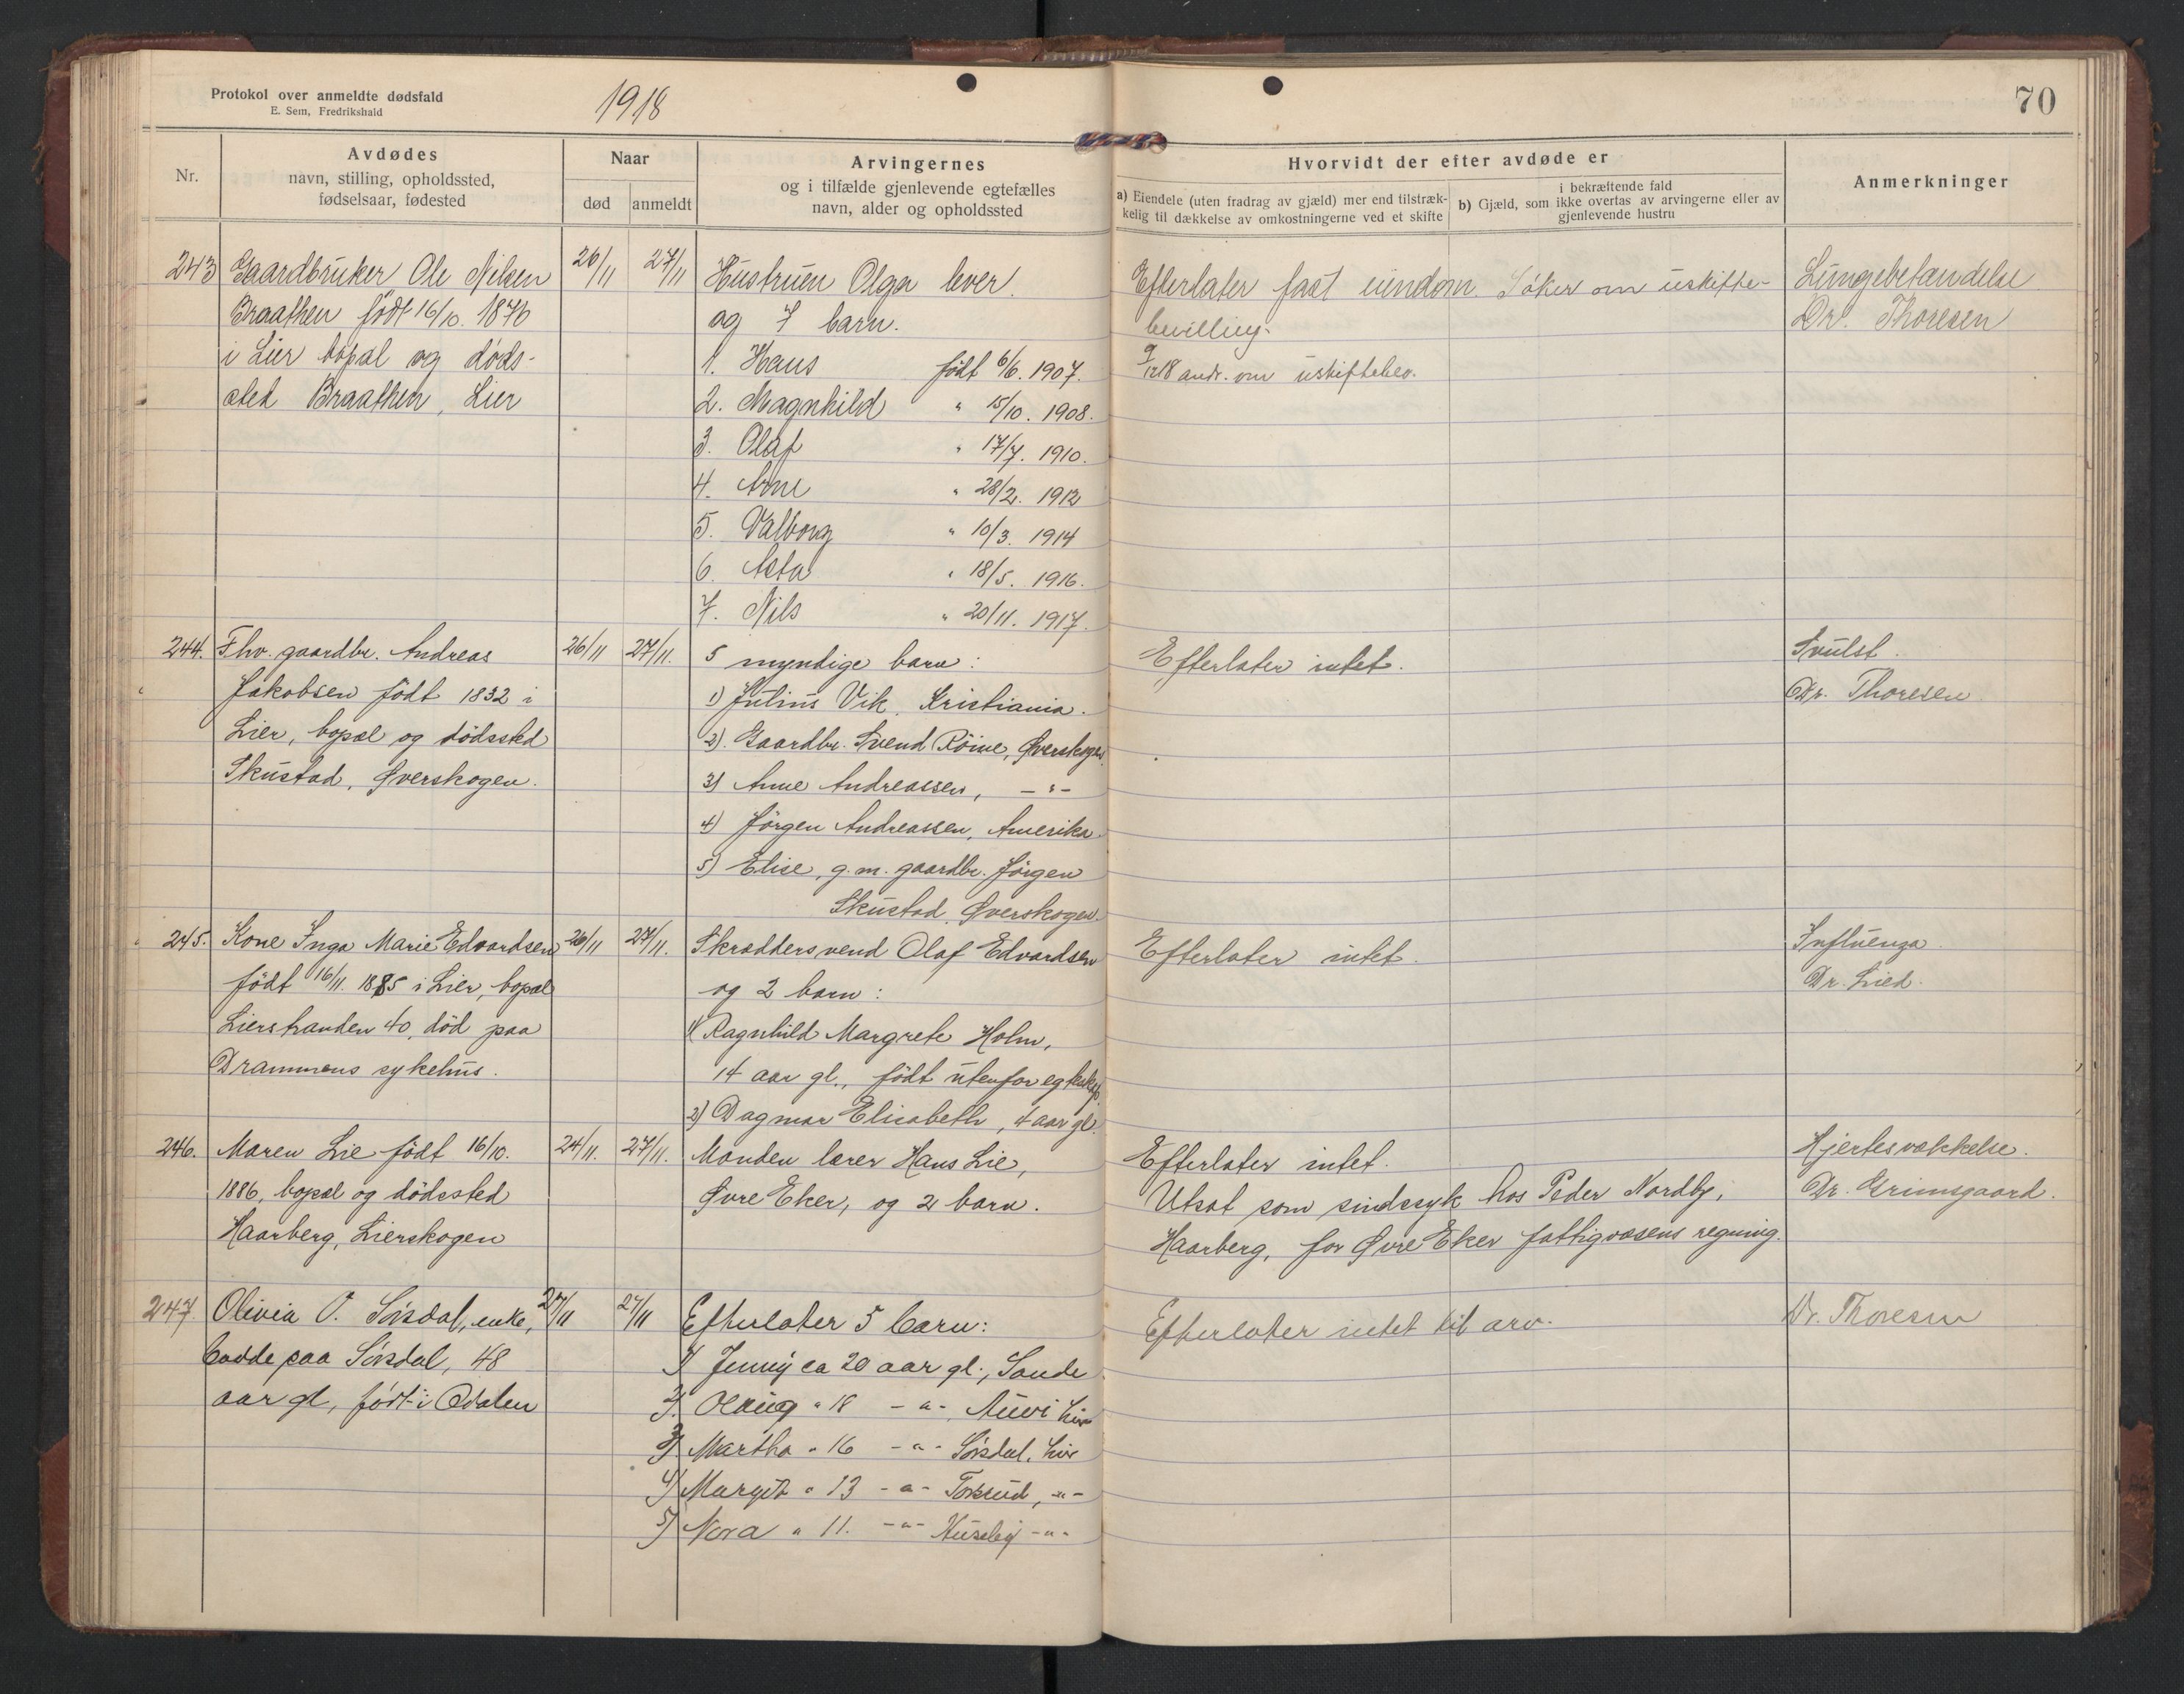 Protokol over anmeldte dødsfald
E. Sem, Fredrikshald
1918
70
Nr.
Avdødes
navn, stilling, opholdssted,
fødselsaar, fødested
Naar
død
anmeldt
Arvingernes
og i tilfælde gjenlevende egtefælles
navn, alder og opholdssted
Hvorvidt der efter avdøde er
a) Eiendele (uten fradrag av gjæld) mer end tilstræk-
kelig til dækkelse av omkostningerne ved et skifte
i bekræftende fald
b) Gjæld, som ikke overtas av arvingerne eller av
gjenlevende hustru
Anmerkninger
243 Gaardbruker Ole Nilsen
Braathen født 16/10. 1876
i Lier bopæl og døds-
sted Braathen, Lier
26/11
27/11
Hustruen Olga lever.
og 7 barn.
1. Hans født 6/6. 1907.
2. Magnhild " 15/10. 1908.
3. Olaf " 17/7. 1910.
4. Arne " 28/2. 1912
5. Valborg " 10/3. 1914
6. Asta " 18/5. 1916.
7. Nils " 20/11. 1917.
Efterlater fast eiendom. Søker om uskifte-
bevilling.
9/12 18 andr. om uskiftebev.
Lungebetændelse
Dr. Thoresen
244. Fhv. gaardbr. Andreas
Jakobsen født 1832 i
Lier, bopæl og dødssted
Skustad, Øverskogen.
26/11
27/11.
5 myndige barn:
1) Julius Vik, Kristiania.
2). Gaardbr. Svend Röine, Øverskogen.
3) Anne Andreassen, - " -
4) Jörgen Andreassen, Amerika.
5) Elise, g. m. gaardbr. Jörgen
Skustad, Øverskogen.
Efterlater intet.
Svulst.
Dr. Thoresen
245. Kone Inga Marie Edvardsen
født 16/11. 1885 i Lier, bopæl
Lierstranden 40, död paa
Drammens sykehus.
26/11
27/11.
Skræddersvend Olaf Edvardsen
og 2 barn:
1) Ragnhild Margrete Holm,
14 aar gl., født utenfor egteskap.
2) Dagmar Elisabeth, 4 aar gl.
Efterlater intet.
Influenza.
Dr. Lied.
246. Maren Lie født 16/10.
1886, bopæl og dødssted
Haarberg, Lierskogen
24/11.
27/11.
Manden lærer Hans Lie,
Øvre Eker, og 2 barn.
Efterlater intet.
Utsat som sindssyk hos Peder Nordby,
Haarberg, for Øvre Eker fattigvæsens regning.
Hjertesvækkelse.
Dr. Grimsgaard.
247. Olivia O. Sørsdal, enke,
bodde paa Sørsdal, 48
aar gl, født i Odalen
27/11
27/11
Efterlater 5 barn:
1) Jenny ca 20 aar gl., Sande
2) Olaug " 18 - " - Auvi Lier
3) Martha " 16 - " - Sørsdal, Lier
4) Margit " 13 - " - Torsrud, - " -
5) Nora " 11. - " - Huseby - " -
Efterlater intet til arv.
Dr. Thoresen